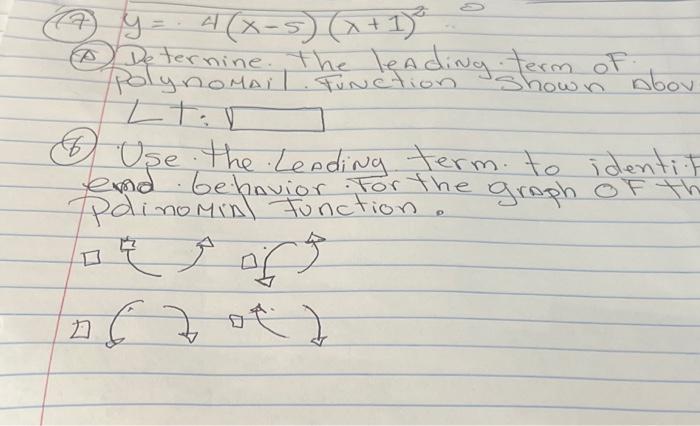 (7) y = 4(x-5)(x+1)²
(A) Determine. the leading. term of
polynomail. Function shown Abov
LT:
(B) Use the Leading term. to identif
end behavior For the graph OF th
Polinomial Function.